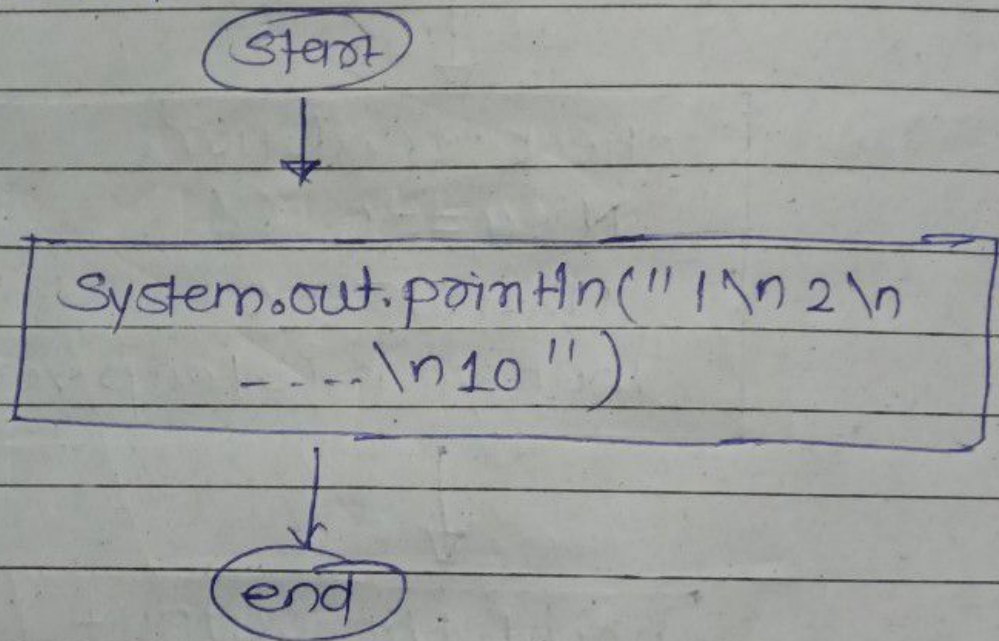 Start
System.out.println("1\n2\n
-....\n10")
end